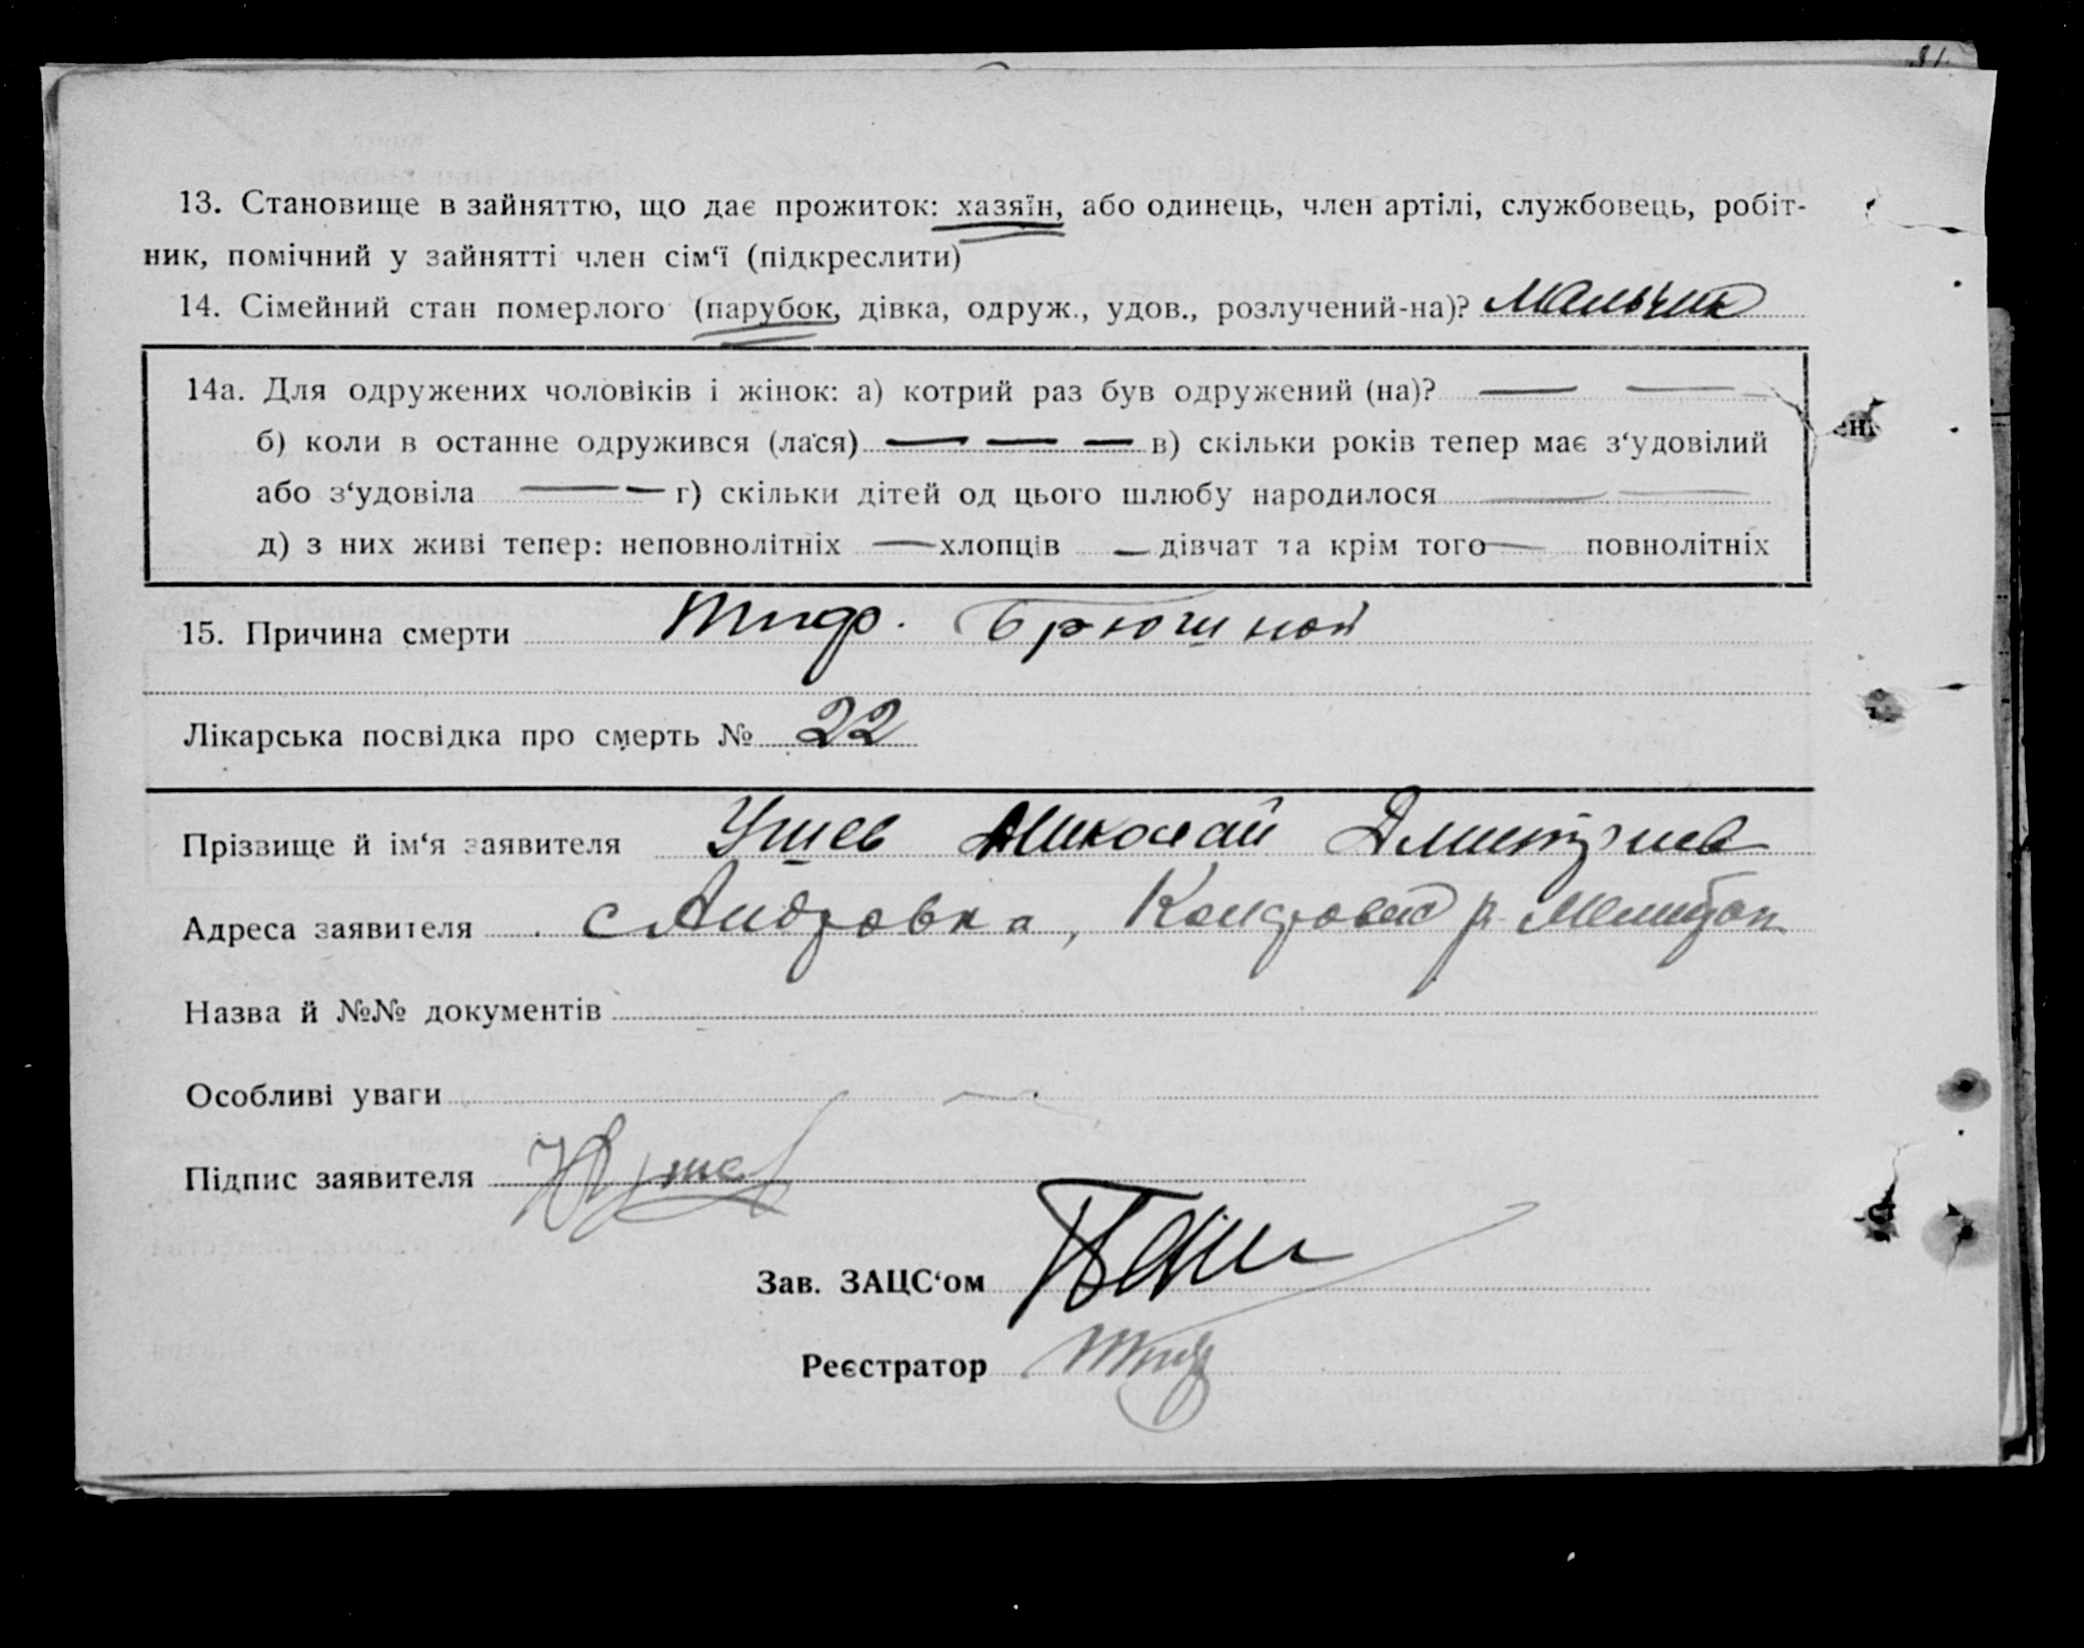 81
13. Становище в зайняттю, що дає прожиток: хазяїн, або одинець, член артілі, службовець, робіт-
ник, помічний у зайнятті член сім‘ї (підкреслити)
14. Сімейний стан померлого (парубок, дівка, одруж., удов., розлучений-на)? Мальчик
14а. Для одружених чоловіків і жінок: а) котрий раз був одружений (на)? — —
б) коли в останне одружився (лася) — — — в) скільки років тепер має з‘удовілий
або з‘удовіла — — г) скільки дітей од цього шлюбу народилося — —
д) з них живі тепер: неповнолітніх — хлопців — дівчат та крім того — повнолітніх
15. Причина смерти Тиф. Брюшной
Лікарська посвідка про смерть № 22
Прізвище й ім‘я заявителя Ушев Николай Дмитриев
Адреса заявителя с Андровка, р. Мелитоп.
Назва й №№ документів
Особливі уваги —
Підпис заявителя
Зав. ЗАЦС‘ом
Реєстратор